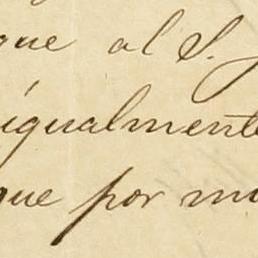 que al S.
igualmente
que por